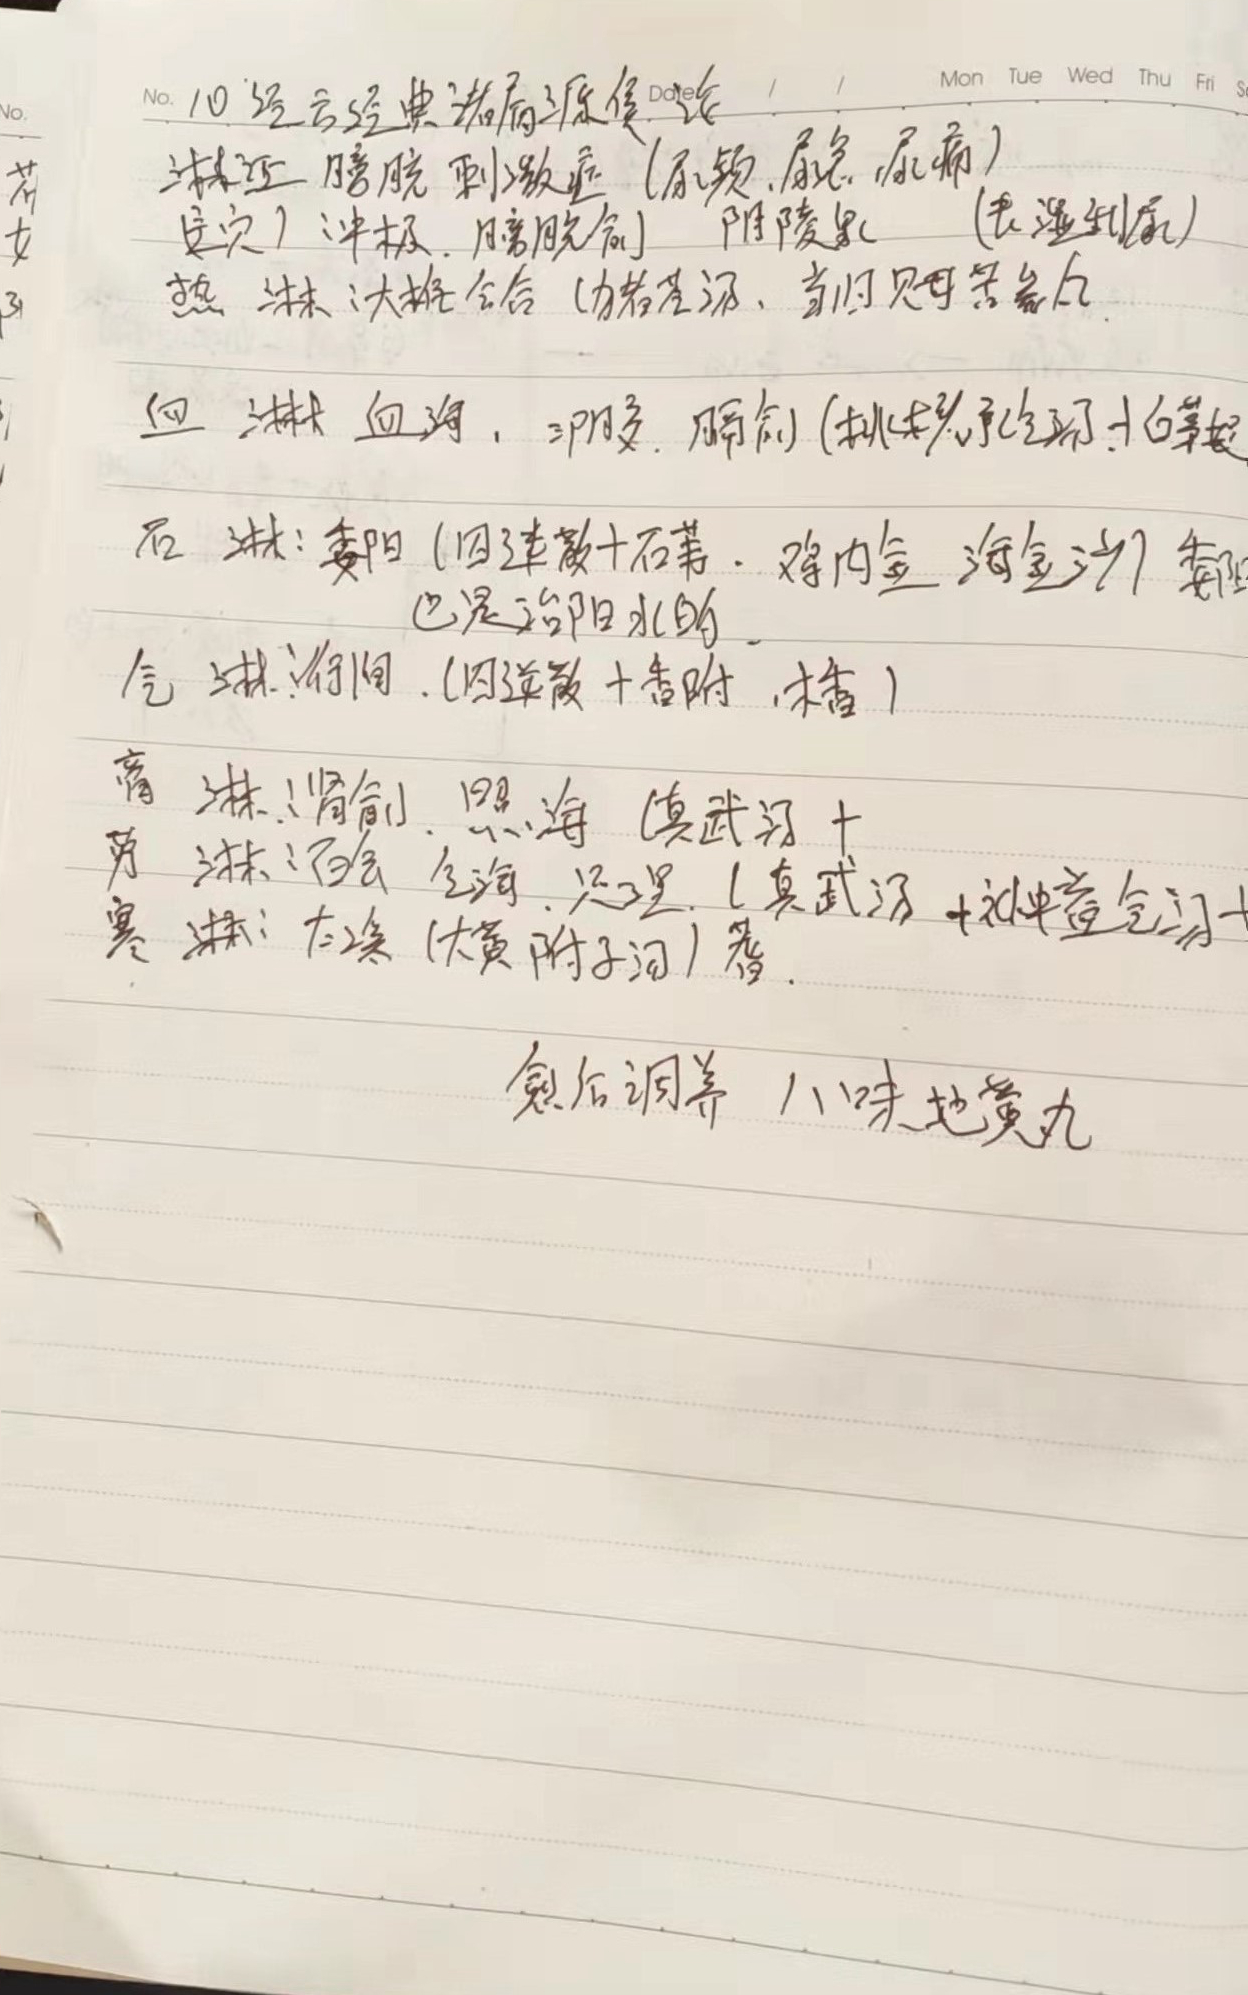 No. 10 经云经典诸病源候论 Date / / Mon Tue Wed Thu Fri
淋证 膀胱刺激症 (尿频、尿急、尿痛)
主穴) 中极. 膀胱俞 阴陵泉 (去湿利尿)
热 淋:大椎 合谷 ( 汤、当归贝母苦参丸
血 淋 血海、三阴交. 膈俞 (桃核承气汤+白茅根
石 淋:委阳 (四逆散+石苇. 鸡内金 海金沙) 委阳
也是治阳水的
气 淋:行间.(四逆散+香附、木香)
膏 淋:肾俞、照海 (真武汤+
劳 淋:百会 气海、足三里.(真武汤+补中益气汤+
寒 淋:太溪 (大黄附子汤)
愈后调养 八味地黄丸
No.
女